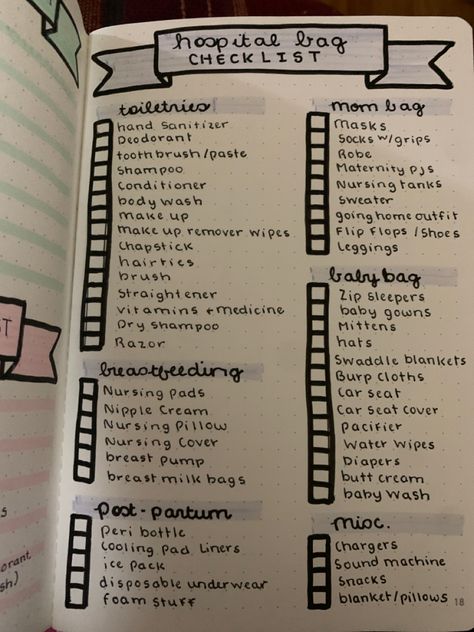 hospital bag
CHECKLIST
toiletries
hand sanitizer
Deodorant
toothbrush/paste
Shampoo
Conditioner
body wash
make up
make up remover wipes
Chapstick
hairties
brush
Straightener
vitamins + medicine
Dry shampoo
Razor
breastfeeding
Nursing pads
Nipple Cream
Nursing Pillow
Nursing Cover
breast pump
breast milk bags
post-partum
Peri bottle
Cooling pad liners
ice pack
disposable underwear
foam stuff
mom bag
Masks
Socks w/grips
Robe
Maternity pjs
Nursing tanks
Sweater
going home outfit
Flip Flops /Shoes
Leggings
baby bag
Zip sleepers
baby gowns
Mittens
hats
Swaddle blankets
Burp Cloths
Car seat
Car seat cover
pacifier
Water wipes
Diapers
butt cream
baby wash
misc.
Chargers
Sound machine
Snacks
blanket/pillows
18